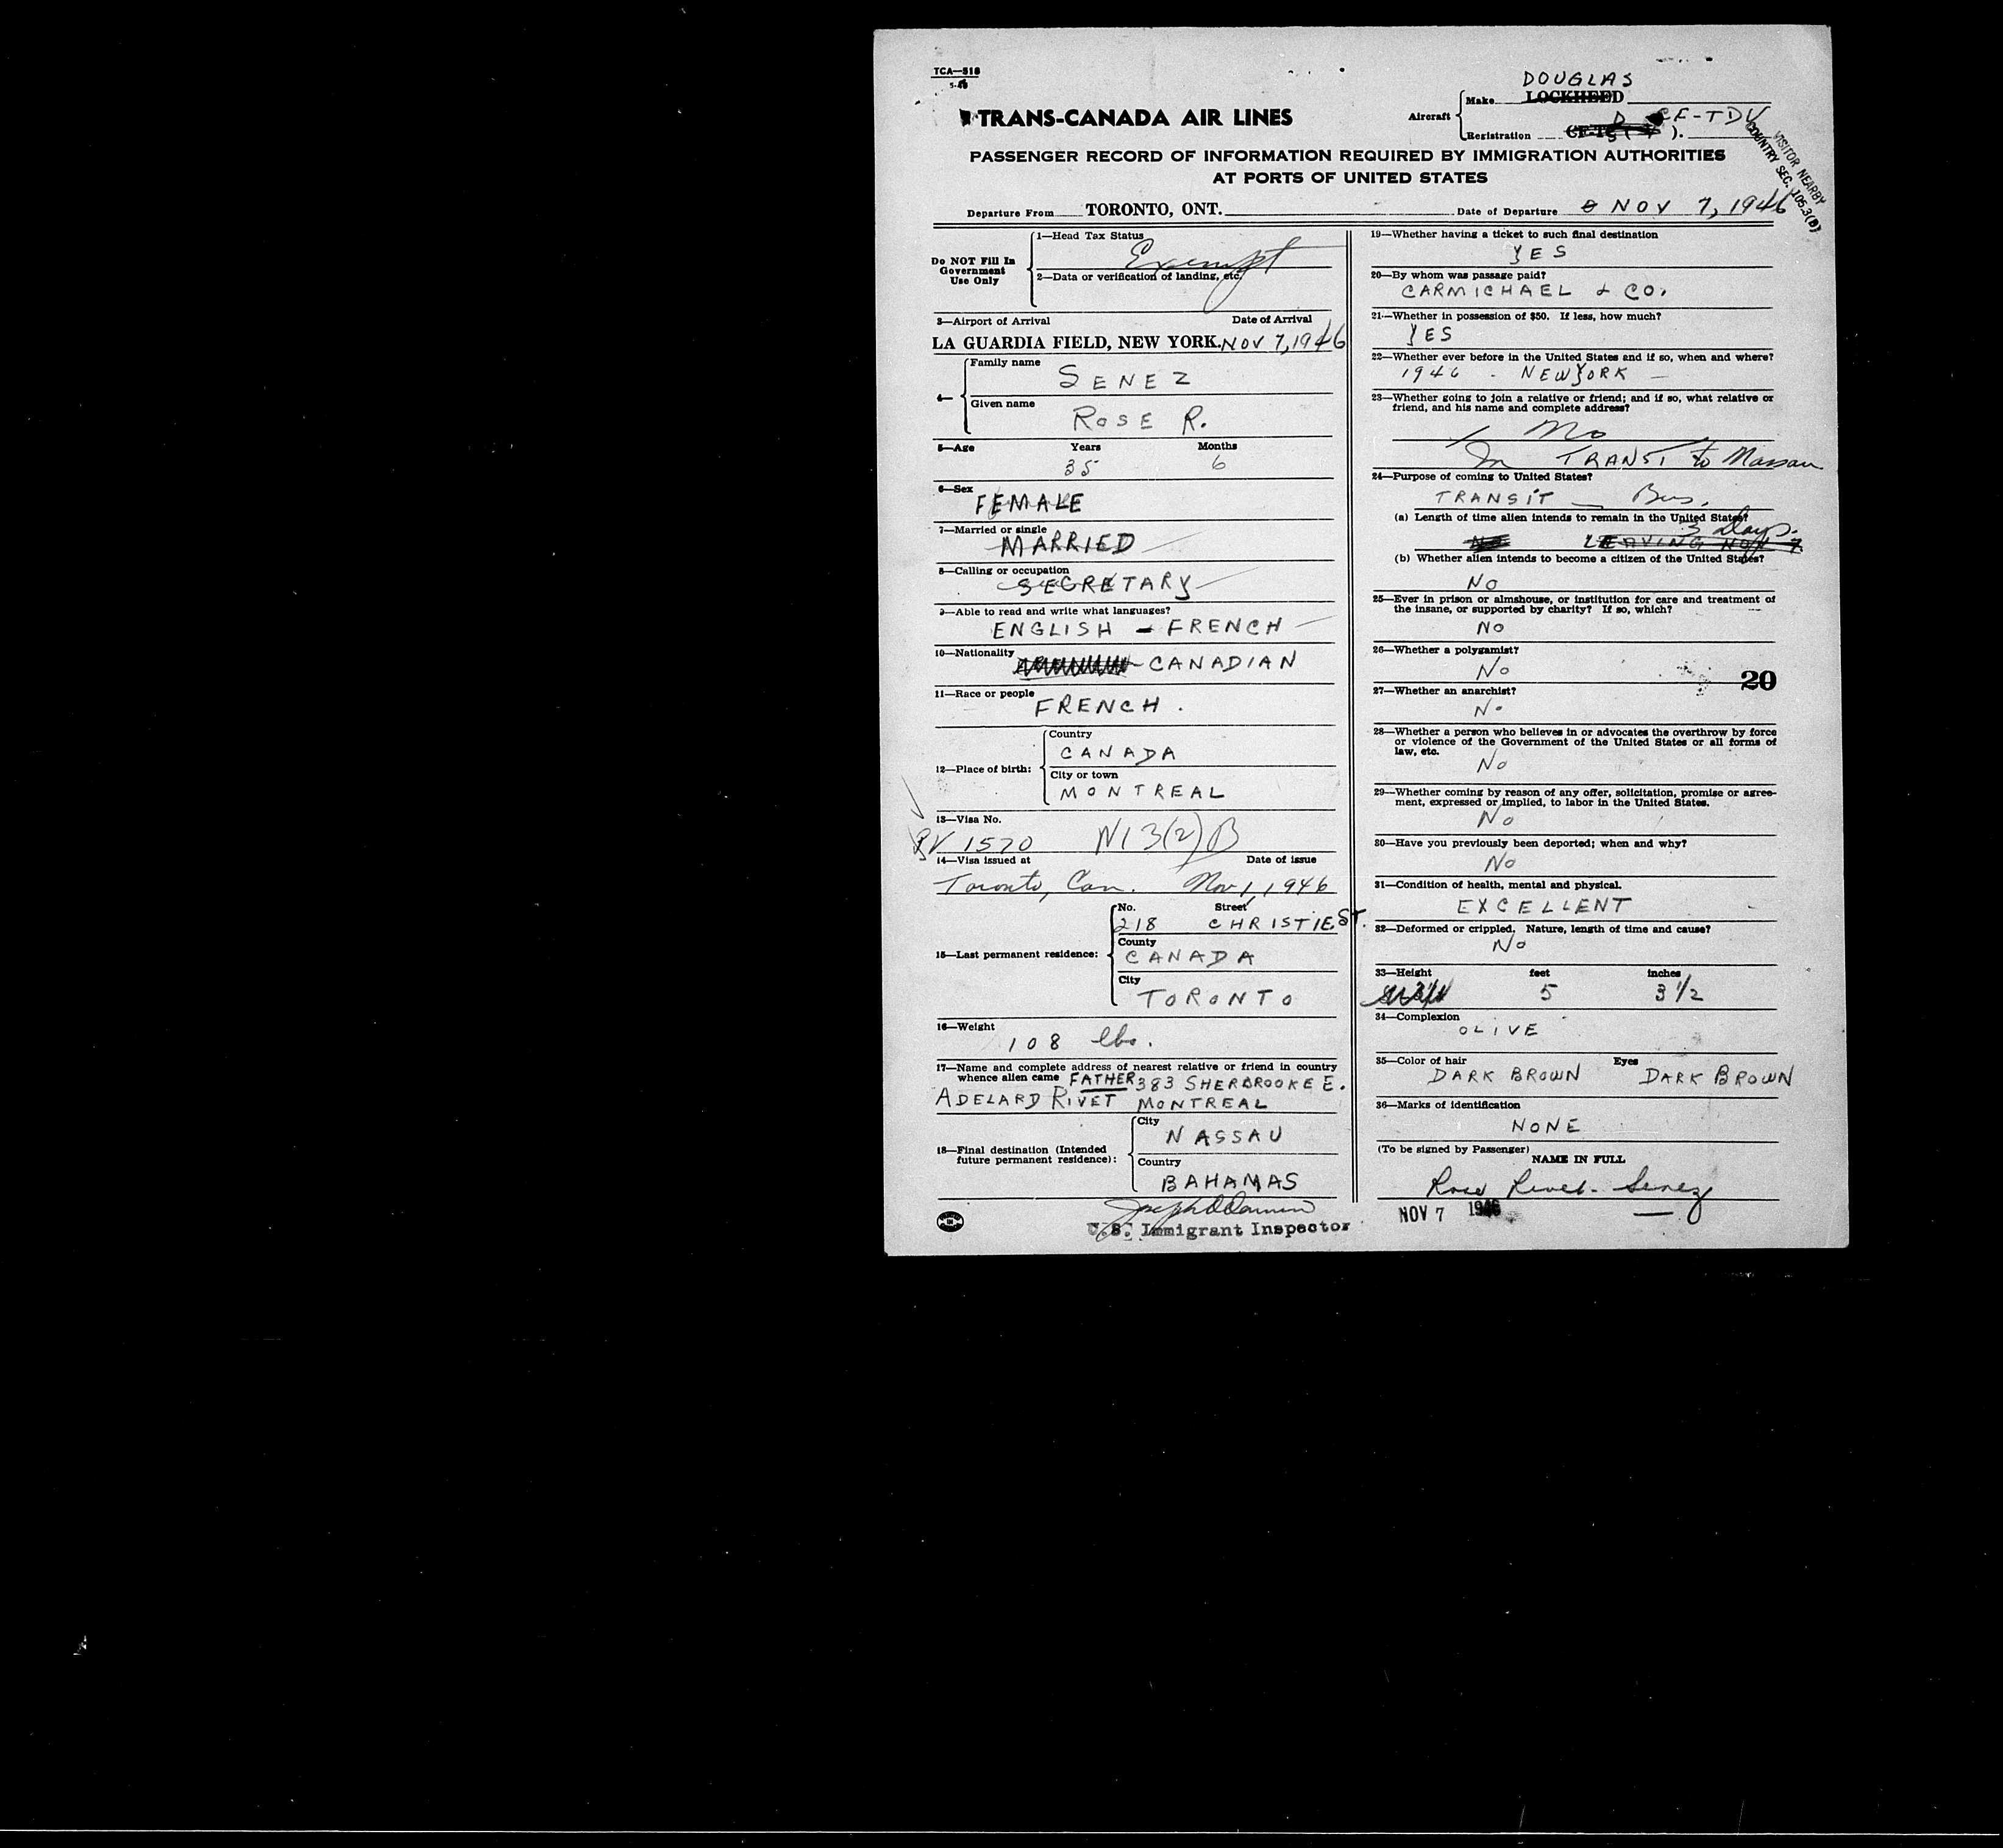 TCA—518
5-46
TRANS-CANADA AIR LINES
DOUGLAS
Aircraft
Make LOCKHEED
Registration CF-T ( ). CF-TDV
VISITOR NEARBY
COUNTRY SEC. 105.3(B)
PASSENGER RECORD OF INFORMATION REQUIRED BY IMMIGRATION AUTHORITIES
AT PORTS OF UNITED STATES
Departure From TORONTO, ONT. Date of Departure NOV 7, 1946
Do NOT Fill In
Government
Use Only
1—Head Tax Status
Exempt
2—Data or verification of landing, etc.
3—Airport of Arrival Date of Arrival
LA GUARDIA FIELD, NEW YORK. NOV 7, 1946
4—
Family name
SENEZ
Given name
ROSE R.
5—Age Years Months
35 6
6—Sex
FEMALE
7—Married or single
MARRIED
8—Calling or occupation
SECRETARY
9—Able to read and write what languages?
ENGLISH - FRENCH
10—Nationality
CANADIAN
11—Race or people
FRENCH.
12—Place of birth:
Country
CANADA
City or town
MONTREAL
13—Visa No.
1570 N13(2)B
14—Visa issued at Date of issue
Toronto, Can. Nov 1, 1946
15—Last permanent residence:
No. Street
218 CHRISTIE ST.
County
CANADA
City
TORONTO
16—Weight
108 lbs.
17—Name and complete address of nearest relative or friend in country
whence alien came FATHER 383 SHERBROOKE E.
ADELARD RIVET MONTREAL
18—Final destination (Intended
future permanent residence):
City
NASSAU
Country
BAHAMAS
U.S. Immigrant Inspector
19—Whether having a ticket to such final destination
YES
20—By whom was passage paid?
CARMICHAEL & CO.
21—Whether in possession of $50. If less, how much?
YES
22—Whether ever before in the United States and if so, when and where?
1946 - NEW YORK —
23—Whether going to join a relative or friend; and if so, what relative or
friend, and his name and complete address?
No
In TRANSIT to Nassau
24—Purpose of coming to United States?
TRANSIT — Bus.
(a) Length of time alien intends to remain in the United States?
3 Days.
LEAVING NOV 7
(b) Whether alien intends to become a citizen of the United States?
NO
25—Ever in prison or almshouse, or institution for care and treatment of
the insane, or supported by charity? If so, which?
NO
26—Whether a polygamist?
No
20
27—Whether an anarchist?
No
28—Whether a person who believes in or advocates the overthrow by force
or violence of the Government of the United States or all forms of
law, etc.
No
29—Whether coming by reason of any offer, solicitation, promise or agree-
ment, expressed or implied, to labor in the United States.
No
30—Have you previously been deported; when and why?
No
31—Condition of health, mental and physical.
EXCELLENT
32—Deformed or crippled. Nature, length of time and cause?
No
33—Height feet inches
5 3 1/2
34—Complexion
OLIVE
35—Color of hair Eyes
DARK BROWN DARK BROWN
36—Marks of identification
NONE
(To be signed by Passenger)
NAME IN FULL
Rose Rivet-Senez
NOV 7 1946